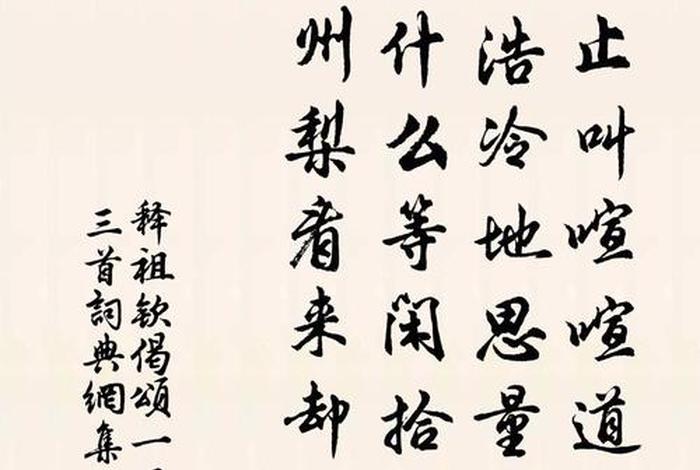 止叫喧喧道
浩冷地思量
什么等闲拾
州梨看来却
释祖钦偈颂一
三首詞典網集